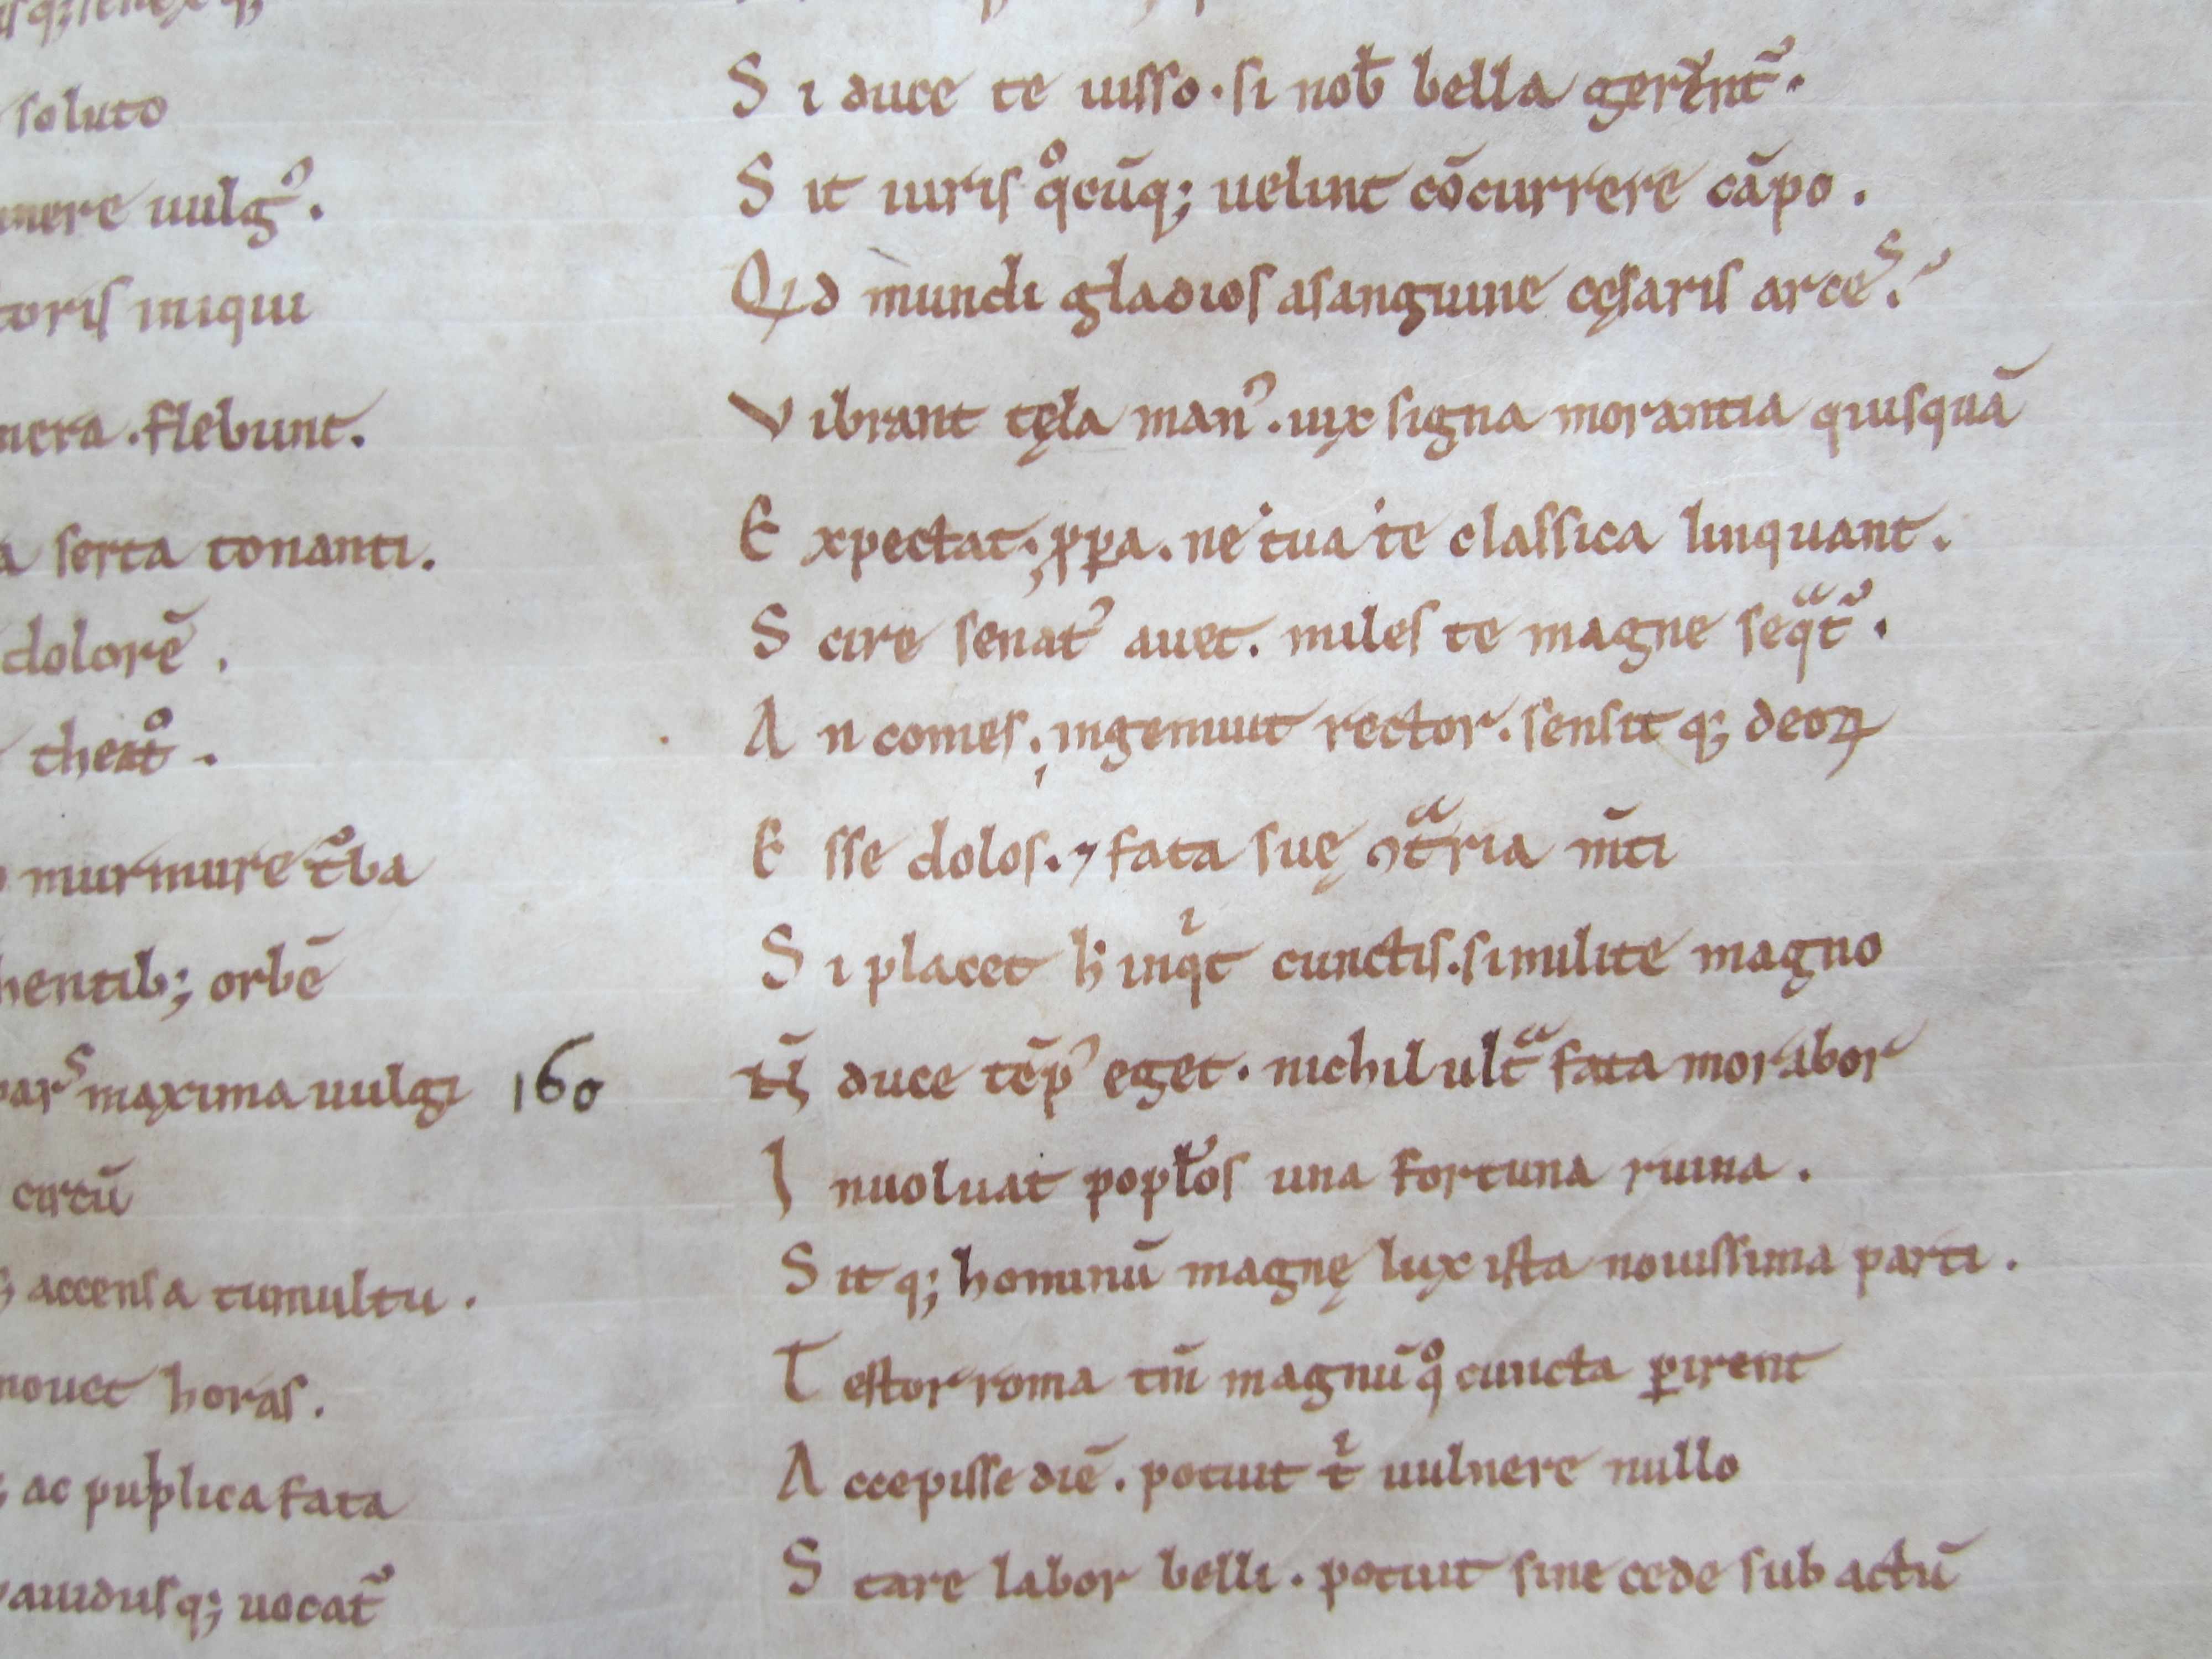 soluto
uulgꝰ.
toris iniqui
flebunt.
serta tonanti.
dolorē.
theatͦ.
murmure tᷣba
orbē
parˢ maxima uulgi 160
circū
accensa tumultu.
mouet horas.
ac puplica fata
auidusq; uocatᷣ
S i duce te iusso. si nob̄ bella gerᷣintᷣ.
S it iuris qͦcūq; uelint cōcurrere cāpo.
Qid mundi gladios a sanguine cęsaris arceˢ.
V ibrant tęla manꝰ. uix signa morantia quisquā
E xpectat; ꝓꝑa. ne tua te classica linquant.
S cire senatꝰ auet. miles te magne seqᵃtᷣ.
A n comes; ingemuit rector. sensit q; deoꝝ
E sse dolos. ⁊ fata suę ꝯtᵃria m̄ti
S i placet h̄ inqⁱt cunctis. si milite magno
N̄ duce tēpꝰ eget. nichil ultᵃ fata morabor
I nuoluat popł̓os una fortuna ruina.
S it q; hominū magnę lux ista nouissima parti.
T estor roma tm̄ magnū qͦ cuncta ꝑirent
A ccepisse diē. potuit tⁱ uulnere nullo
S tare labor belli. potuit sine cede sub actū